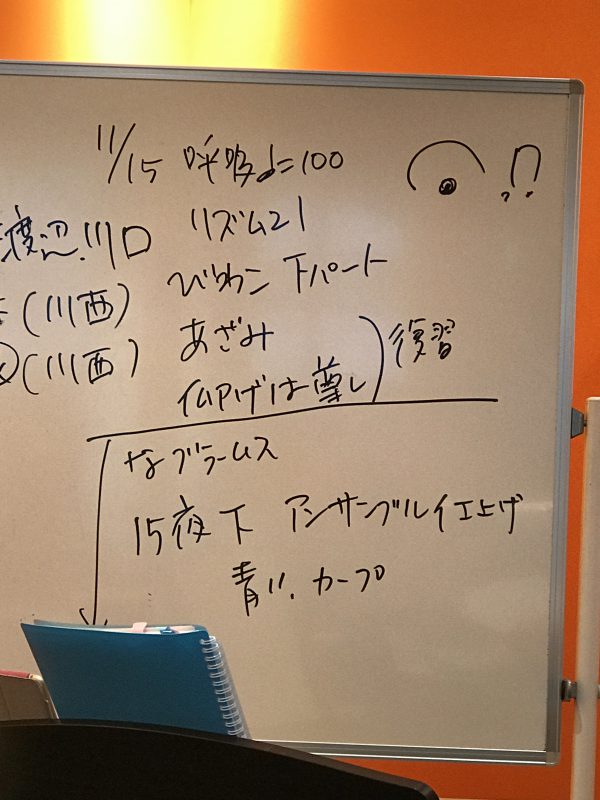 11/15 呼吸♩=100
渡辺.川口 リズム21
(川西) びわこ 下パート
(川西) あざみ
仰げば尊し 復習
ブラームス
15夜下 アンサンブル仕上げ
青い. カープ